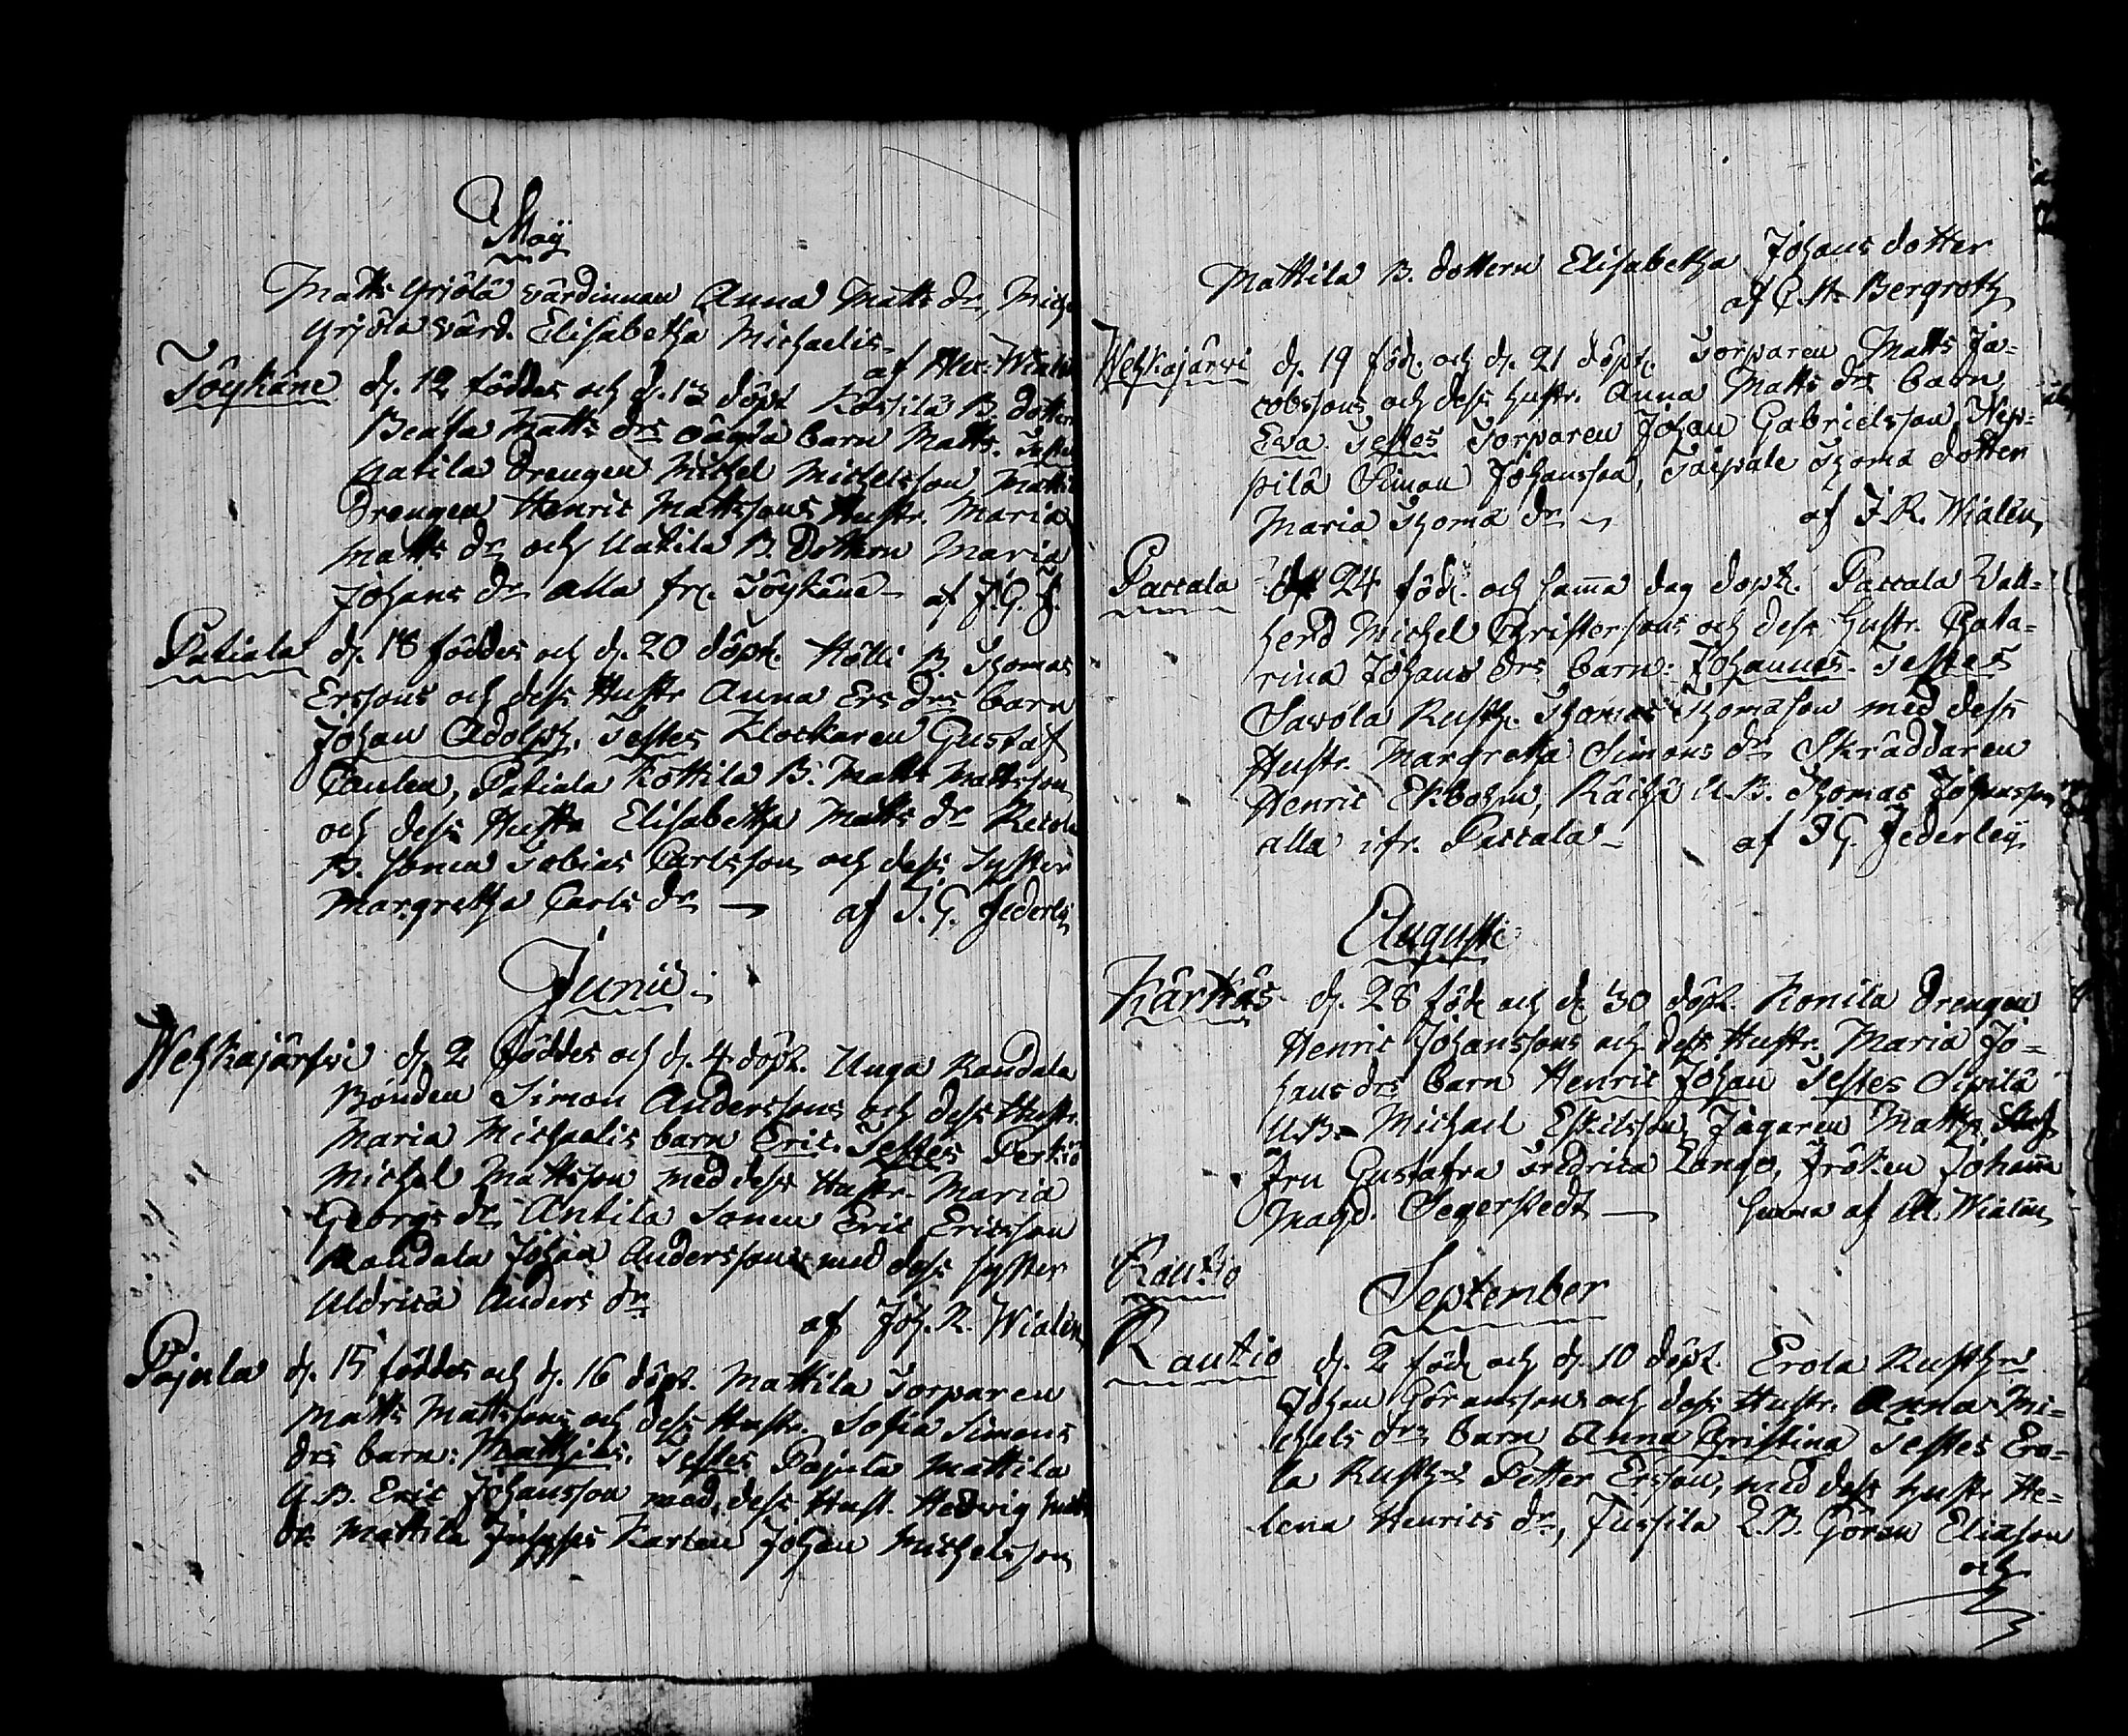 Maij
Matts Yrjölä värdinnan Anna Matts dr, Mich
Yrjölä värd. Elisabetha Michaelis
af Alex: Wialen
Töykäne d. 12 föddes och d. 13 döpt Kossila B. dottern
Beata Matts drs oägta barn Matts. Testes
Uotila Drengen Michel Michelsson Mattil
Drengen Henric Mattssons Hustr. Maria
Matts dr och Uotila B. dottern Maria
Johans dr alla fr. Töykäne af J. G. J.
Patiala d. 18 föddes och d. 20 döpt. Hölli B. Thomas
Erssons och dess Hustr Anna Ers drs barn
Johan Adolph. Testes Klockaren Gustaf
Paulen, Patiala Kottila B. Matts Mattsson
och dess Hustr Elisabetha Matts dr
B. sonen Tobias Carlsson och dess Syster
Margretha Carls dr af J. G. Jederley
Junii
Wehkajärfwi d. 2 föddes och d. 4 döpt. Unga Randala
Bonden Simon Anderssons och dess Hustr.
Maria Michaelis barn Eric. Testes Perkiö
Michel Mattsson med dess Hustr. Maria
Georgs dr Antila Sonen Eric Ericsson
Randala Johan Anderssons med dess syster
Uldrica Anders dr
af Joh. R. Wialen
Pajula d. 15 föddes och d. 16 döpt. Mattila Torparen
Matts Mattssons och dess Hustr. Sofia Simons
drs barn: Matthias. Testes Pajula Mattila
U.B. Eric Johansson med dess Hust. Hedvig Matts
dr Mattila Karlen Johan Michelsson
Mattila B. dottern Elisabetha Johans dotter
af C. H. Bergroth
Wehkajärwi d. 19 föd. och d. 21 döpt. Torparen Matts Ja-
cobssons och dess hustr. Anna Matts drs barn
Eva. Testes Torparen Johan Gabrielsson, Nep-
pilä Simon Johansson, Taipale Thoma dotter
Maria Thomæ dr
af J. R. Wialen
Paccala d. 24 föd. och samma dag döpt. Paccala Vall-
herd Michel Christersons och dess Hustr. Catha-
rina Johans drs barn: Johannes. Testes
Savola Rusth. Thomas Thomason med dess
Hustr. Margretha Simons dr Skräddaren
Henric Ekbohm, Räihä U.B. Thomas Johansson
alla ifr. Paccala af J. G. Jederleÿ
Augusti
Kärkäs. d. 28 föd och d. 30 döpt. Konila Drengen
Henric Johanssons och dess Hustr. Maria Jo-
hans drs barn Henric Johan Testes Sipilä
U.B. Michael Eskilsson, Jägaren Matth.
Fru Gustafva Fredrica Lange, Fröken Johanna
Magd. Segerstedt hemma af Al. Wialen
Rautio
September
Rautio d. 2 föd och d. 10 döpt. Erola Rusth.
Johan Göranssons och dess Hustr. Anna Mi-
chels drs barn Anna Christina Testes Ero-
la Rusth. Petter Ersson, med dess hustr He-
lena Henrics dr, Jussila L.B. Göran Eliason
och